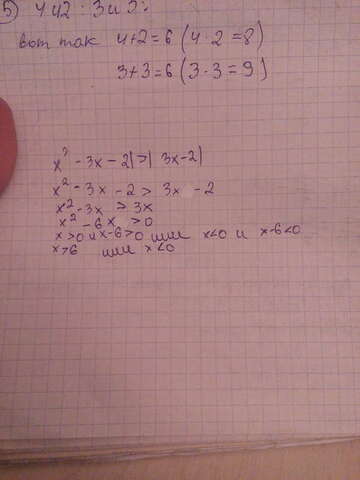 5) 4 и 2 : 3 и 3.
вот так 4+2=6 (4·2=8)
3+3=6 (3·3=9)
x² - 3x - 2|>| 3x-2|
x² - 3x - 2 > 3x - 2
x² - 3x > 3x
x² - 6x > 0
x>0 и x-6>0 или x<0 и x-6<0
x>6 или x<0